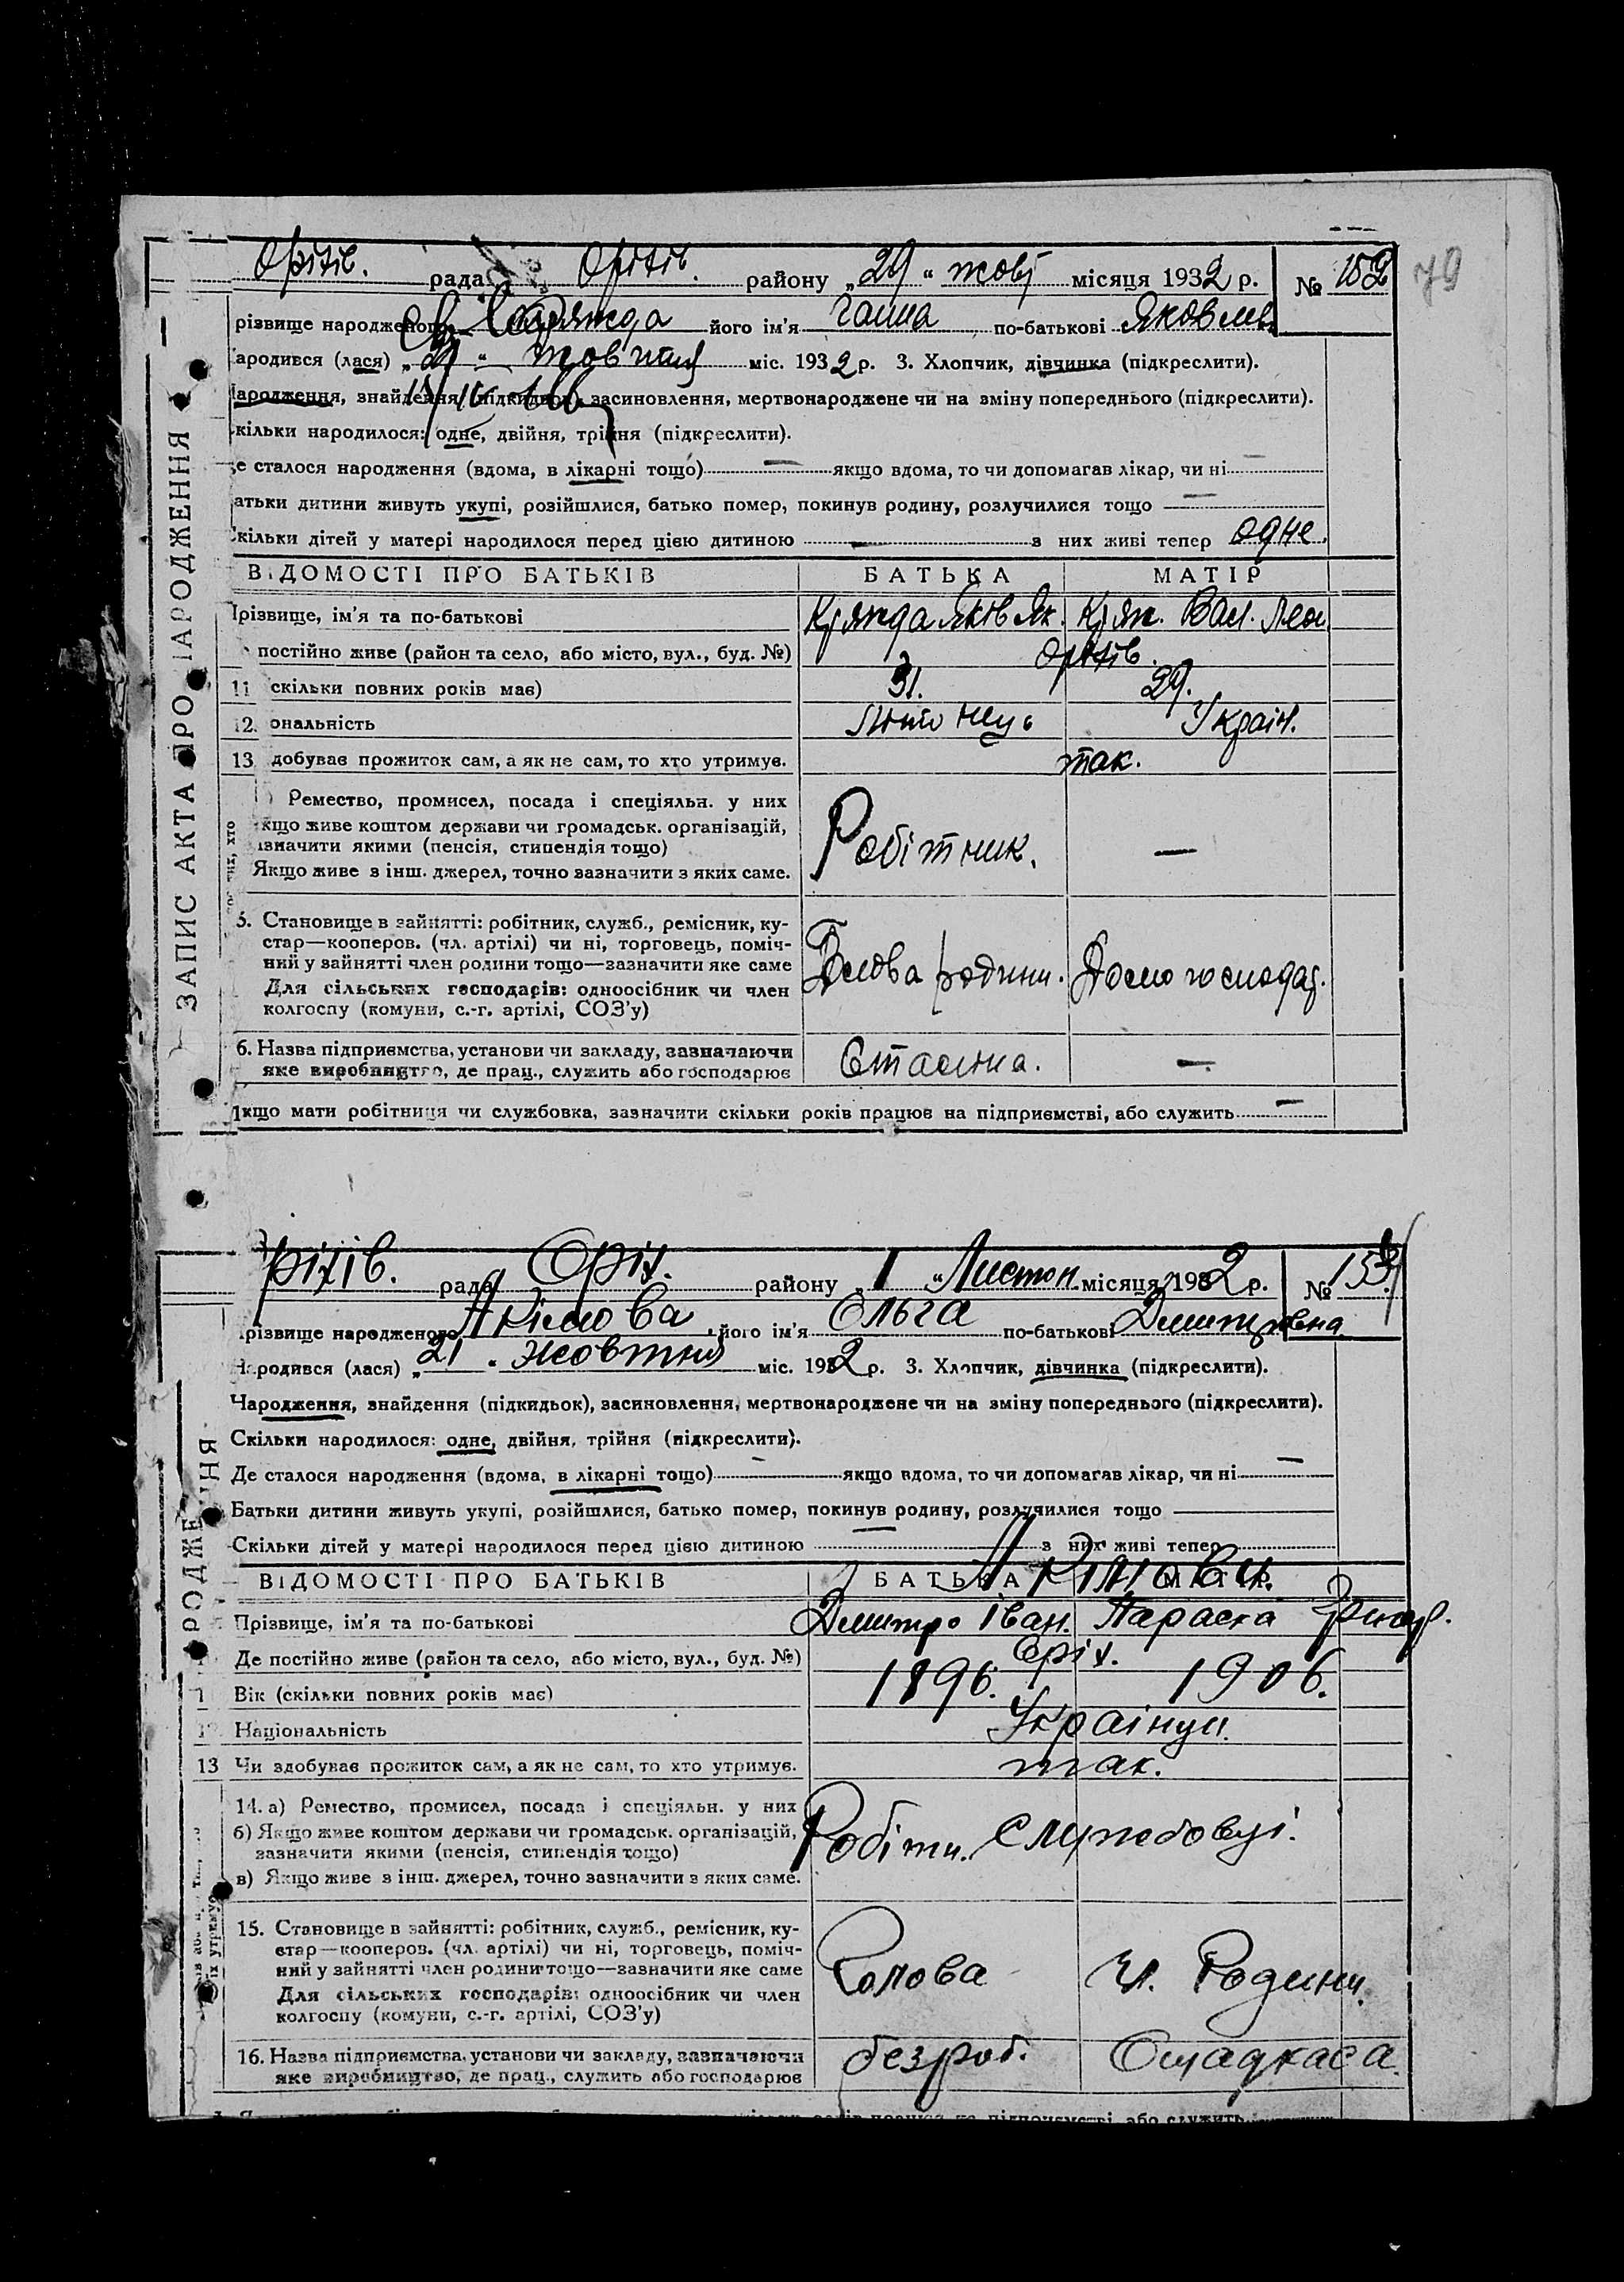 Оріхів. рада Оріхів. району „29“ жовт місяця 1932 р. № 152
79
різвище народженого Кряжда його ім'я Ганна по-батькові Яковлів
ародився (лася) „ “ жовтня міс. 1932 р. 3. Хлопчик, дівчинка (підкреслити).
ародження, знайдення (підкидьок), засиновлення, мертвонароджене чи на зміну попереднього (підкреслити).
кільки народилося: одне, двійня, трійня (підкреслити).
е сталося народження (вдома, в лікарні тощо) — якщо вдома, то чи допомагав лікар, чи ні —
атьки дитини живуть укупі, розійшлися, батько помер, покинув родину, розлучилися тощо —
кільки дітей у матері народилося перед цією дитиною — з них живі тепер одне.
ЗАПИС АКТА ПРО НАРОДЖЕННЯ
ВІДОМОСТІ ПРО БАТЬКІВ БАТЬКА МАТІР
Прізвище, ім'я та по-батькові Кряжда Яків Як. Кряж. Вас. Леон
постійно живе (район та село, або місто, вул., буд. №) Оріхів.
11 скільки повних років має) 31. 29.
12. ональність Україн.
13 добуває прожиток сам, а як не сам, то хто утримує. так.
Ремество, промисел, посада і спеціяльн. у них
кщо живе коштом держави чи громадськ. організацій,
значити якими (пенсія, стипендія тощо) Робітник. —
Якщо живе з інш. джерел, точно зазначити з яких саме.
5. Становище в зайнятті: робітник, служб., ремісник, ку-
стар—кооперов. (чл. артілі) чи ні, торговець, поміч-
ний у зайнятті член родини тощо—зазначити яке саме Голова родини. Домогосподар.
Для сільських господарів: одноосібник чи член
колгоспу (комуни, с.-г. артілі, СОЗ'у)
6. Назва підприємства, установи чи закладу, зазначаючи
яке виробництво, де прац., служить або господарює Сталіна. —
кщо мати робітниця чи службовка, зазначити скільки років працює на підприємстві, або служить —
ріхів. рада Оріх. району „1“ Листоп. місяця 1932 р. №
різвище народженого Акімова його ім'я Ольга по-батькові Дмитрівна
Народився (лася) „21“ жовтня міс. 1932 р. 3. Хлопчик, дівчинка (підкреслити).
Народження, знайдення (підкидьок), засиновлення, мертвонароджене чи на зміну попереднього (підкреслити).
Скільки народилося: одне, двійня, трійня (підкреслити).
Де сталося народження (вдома, в лікарні тощо) — якщо вдома, то чи допомагав лікар, чи ні —
Батьки дитини живуть укупі, розійшлися, батько помер, покинув родину, розлучилися тощо
Скільки дітей у матері народилося перед цією дитиною — з них живі тепер
РОДЖЕННЯ
ВІДОМОСТІ ПРО БАТЬКІВ БАТЬКА МАТІР
Акімови.
Прізвище, ім'я та по-батькові Дмитро Іван. Параска
Де постійно живе (район та село, або місто, вул., буд. №) Оріх.
1 Вік (скільки повних років має) 1896. 1906.
Національність Українці.
13 Чи здобуває прожиток сам, а як не сам, то хто утримує. так.
14. а) Ремество, промисел, посада і спеціяльн. у них
б) Якщо живе коштом держави чи громадськ. організацій,
зазначити якими (пенсія, стипендія тощо) Робітн. Службовці.
в) Якщо живе з інш. джерел, точно зазначити з яких саме.
15. Становище в зайнятті: робітник, служб., ремісник, ку-
стар—кооперов. (чл. артілі) чи ні, торговець, поміч-
ний у зайнятті член родини тощо—зазначити яке саме Голова чл. Родини.
Для сільських господарів: одноосібник чи член
колгоспу (комуни, с.-г. артілі, СОЗ'у)
16. Назва підприємства, установи чи закладу, зазначаючи
яке виробництво, де прац., служить або господарює безроб. Ощадкаса